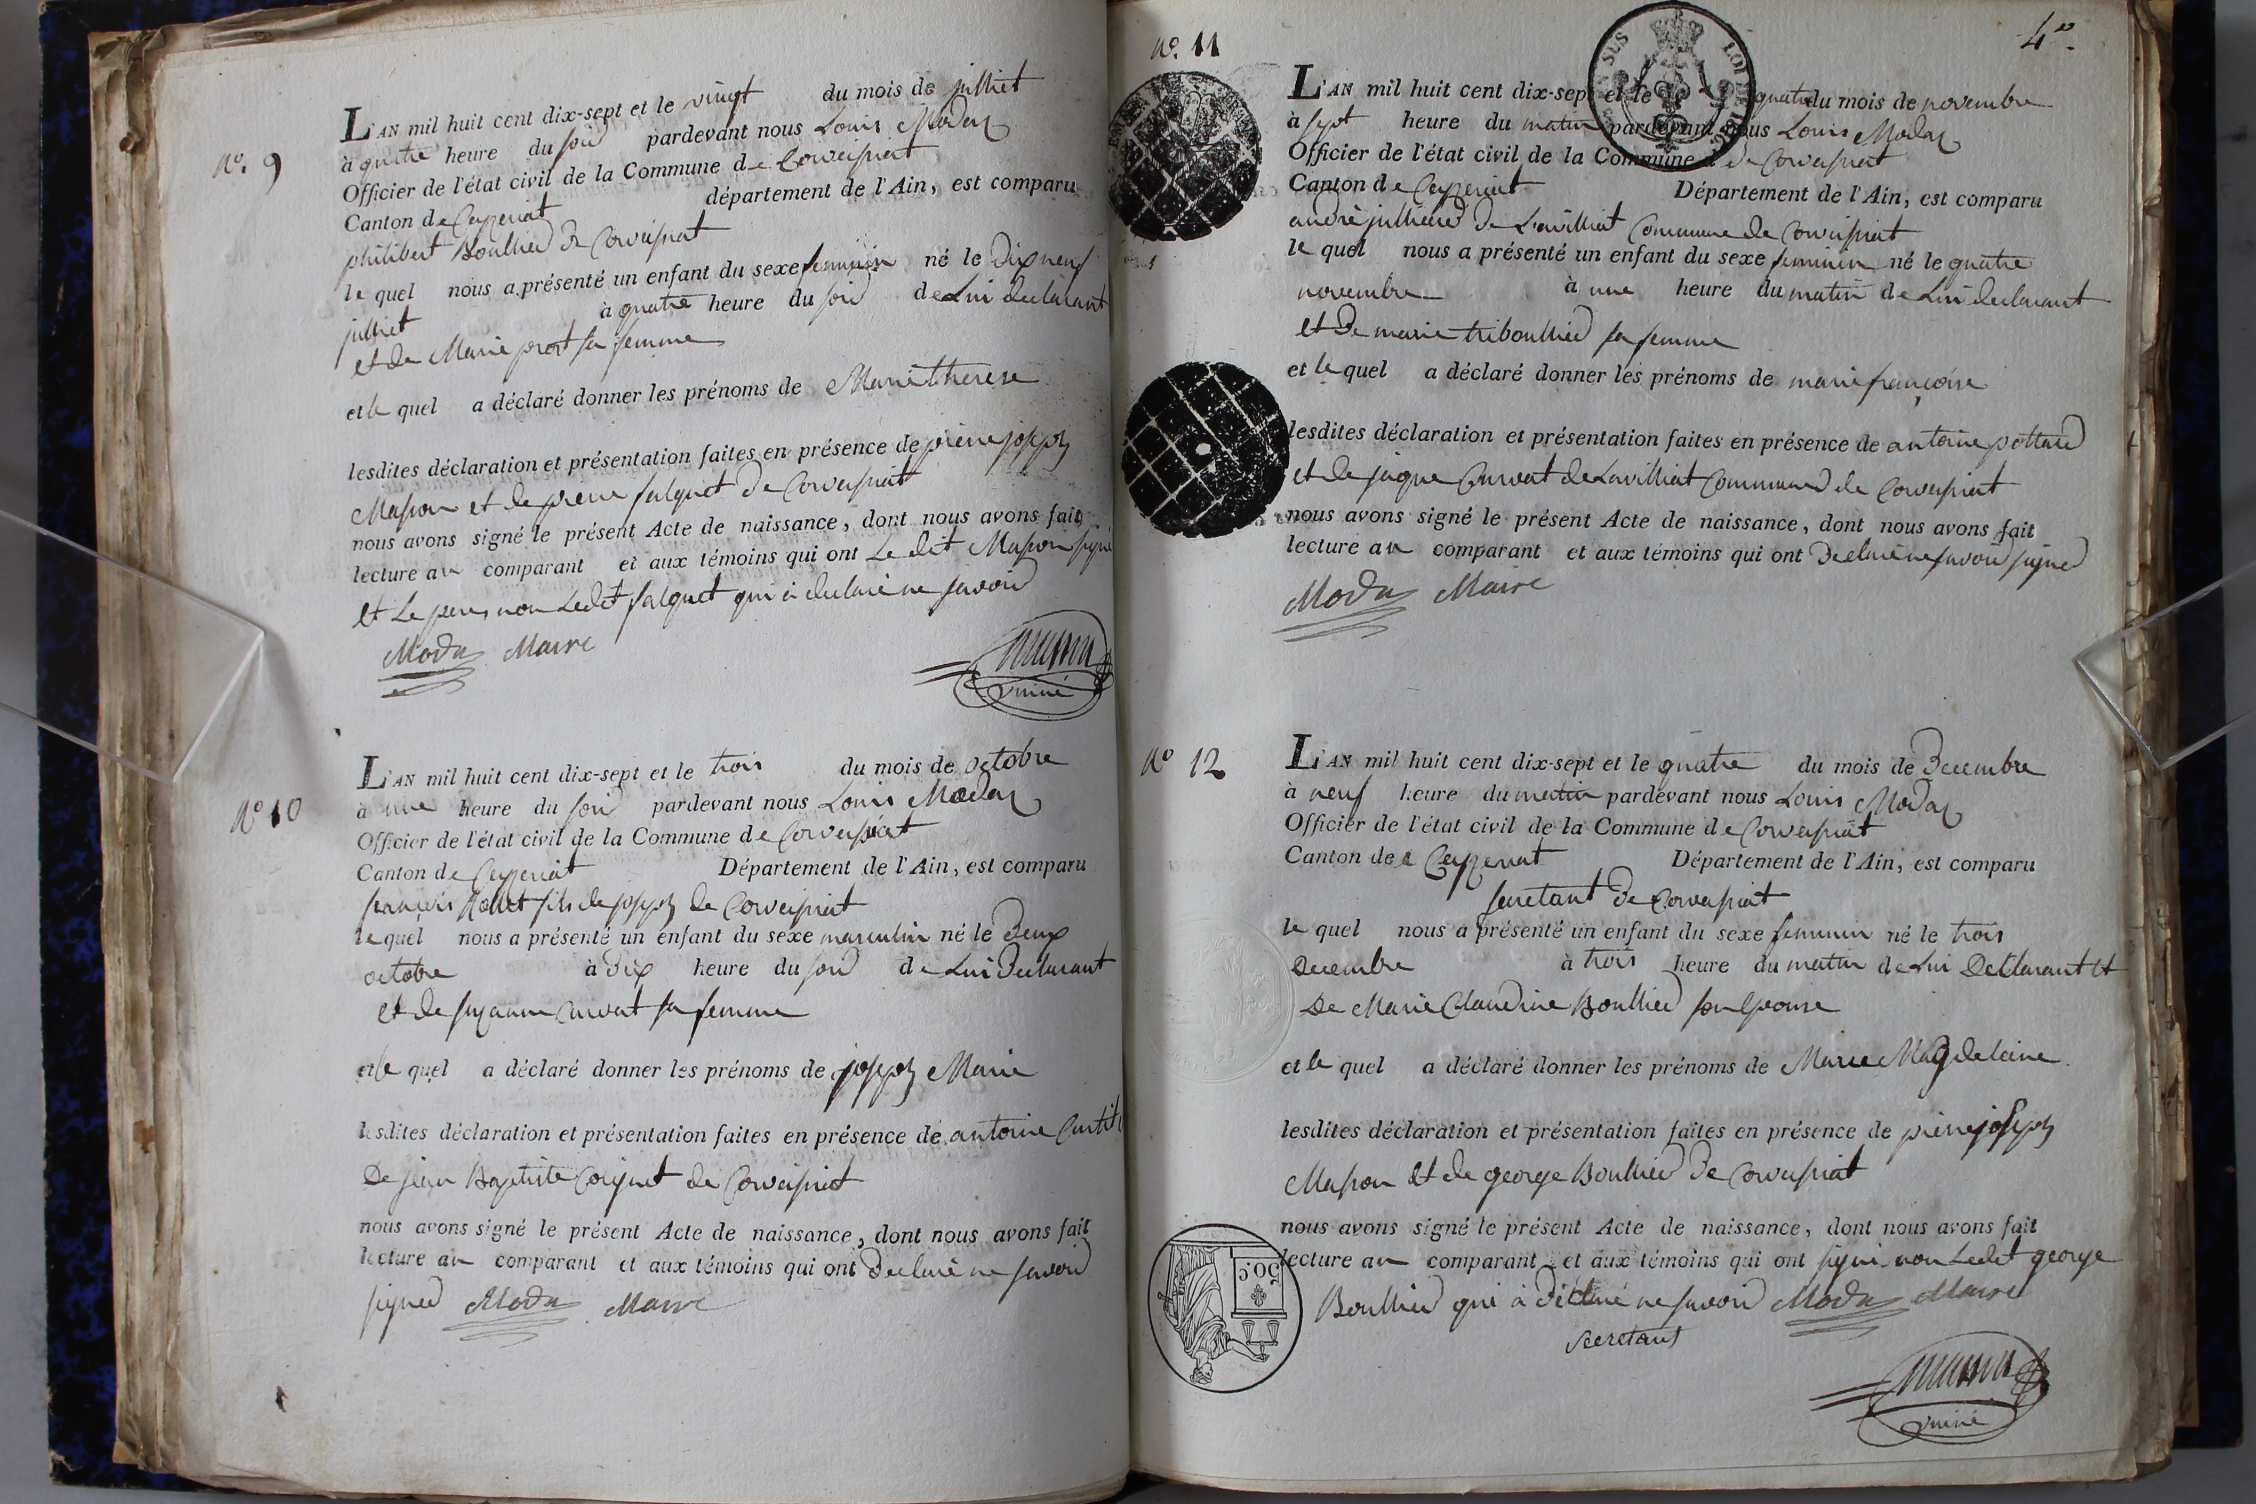 N°. 9
L'AN mil huit cent dix-sept et le vingt du mois de juilliet
à quatre heure du soir pardevant nous Louis Modas
Officier de l'état civil de la Commune de Corveissiat
Canton de Ceyzeriat département de l'Ain, est comparu
philibert Boullier de Corveissiat
le quel nous a présenté un enfant du sexe feminin né le Dix neuf
juilliet à quatre heure du soir de Lui declarant
et de Marie prost sa femme
et le quel a déclaré donner les prénoms de Marie therese
lesdites déclaration et présentation faites en présence de pierre joseph
Masson et de pierre falquet de Corveissiat
nous avons signé le présent Acte de naissance, dont nous avons fait
lecture au comparant et aux témoins qui ont Le dit Masson signé
et Le pere non Ledit falquet qui a declaré ne savoir
Modas Maire
N° 10
L'AN mil huit cent dix-sept et le trois du mois de octobre
à une heure du soir pardevant nous Louis Modas
Officier de l'état civil de la Commune de Corveissiat
Canton de Ceyzeriat Département de l'Ain, est comparu
françois fils de joseph de Corveissiat
le quel nous a présenté un enfant du sexe masculin né le Deux
octobre à Dix heure du soir de Lui Declarant
et de suzanne Curvat sa femme
et le quel a déclaré donner les prénoms de joseph Marie
lesdites déclaration et présentation faites en présence de antoine
De jean Baptiste Coignet de Corveissiat
nous avons signé le présent Acte de naissance, dont nous avons fait
lecture au comparant et aux témoins qui ont Declaré ne savoir
signer Modas Maire
4e.
N°. 11
L'AN mil huit cent dix-sept et le quatre du mois de novembre
à sept heure du matin pardevant nous Louis Modas
Officier de l'état civil de la Commune de Corveissiat
Canton de Ceyzeriat Département de l'Ain, est comparu
andré jullierd de Lavilliat Commune de Corveissiat
le quel nous a présenté un enfant du sexe feminin né le quatre
novembre à une heure du matin de Lui declarant
et De marie triboullier sa femme
et le quel a déclaré donner les prénoms de marie françoise
lesdites déclaration et présentation faites en présence de antoine pottard
et de jaque Curvat de Lavilliat Commune de Corveissiat
nous avons signé le présent Acte de naissance, dont nous avons fait
lecture au comparant et aux témoins qui ont Declaré ne savoir signer
Modas Maire
N° 12
L'AN mil huit cent dix-sept et le quatre du mois de Decembre
à neuf heure du matin pardevant nous Louis Modas
Officier de l'état civil de la Commune de Corveissiat
Canton de Ceyzeriat Département de l'Ain, est comparu
secretant de Corveissiat
le quel nous a présenté un enfant du sexe feminin né le trois
Decembre à trois heure du matin de Lui Declarant et
De Marie Claudine Boullier son Epouse
et le quel a déclaré donner les prénoms de Marie Magdeleine
lesdites déclaration et présentation faites en présence de pierre joseph
Masson et de george Boullier De Corveissiat
nous avons signé le présent Acte de naissance, dont nous avons fait
lecture au comparant et aux témoins qui ont signé non Ledit george
Boullier qui a Déclaré ne savoir Modas Maire
secretant
50.C